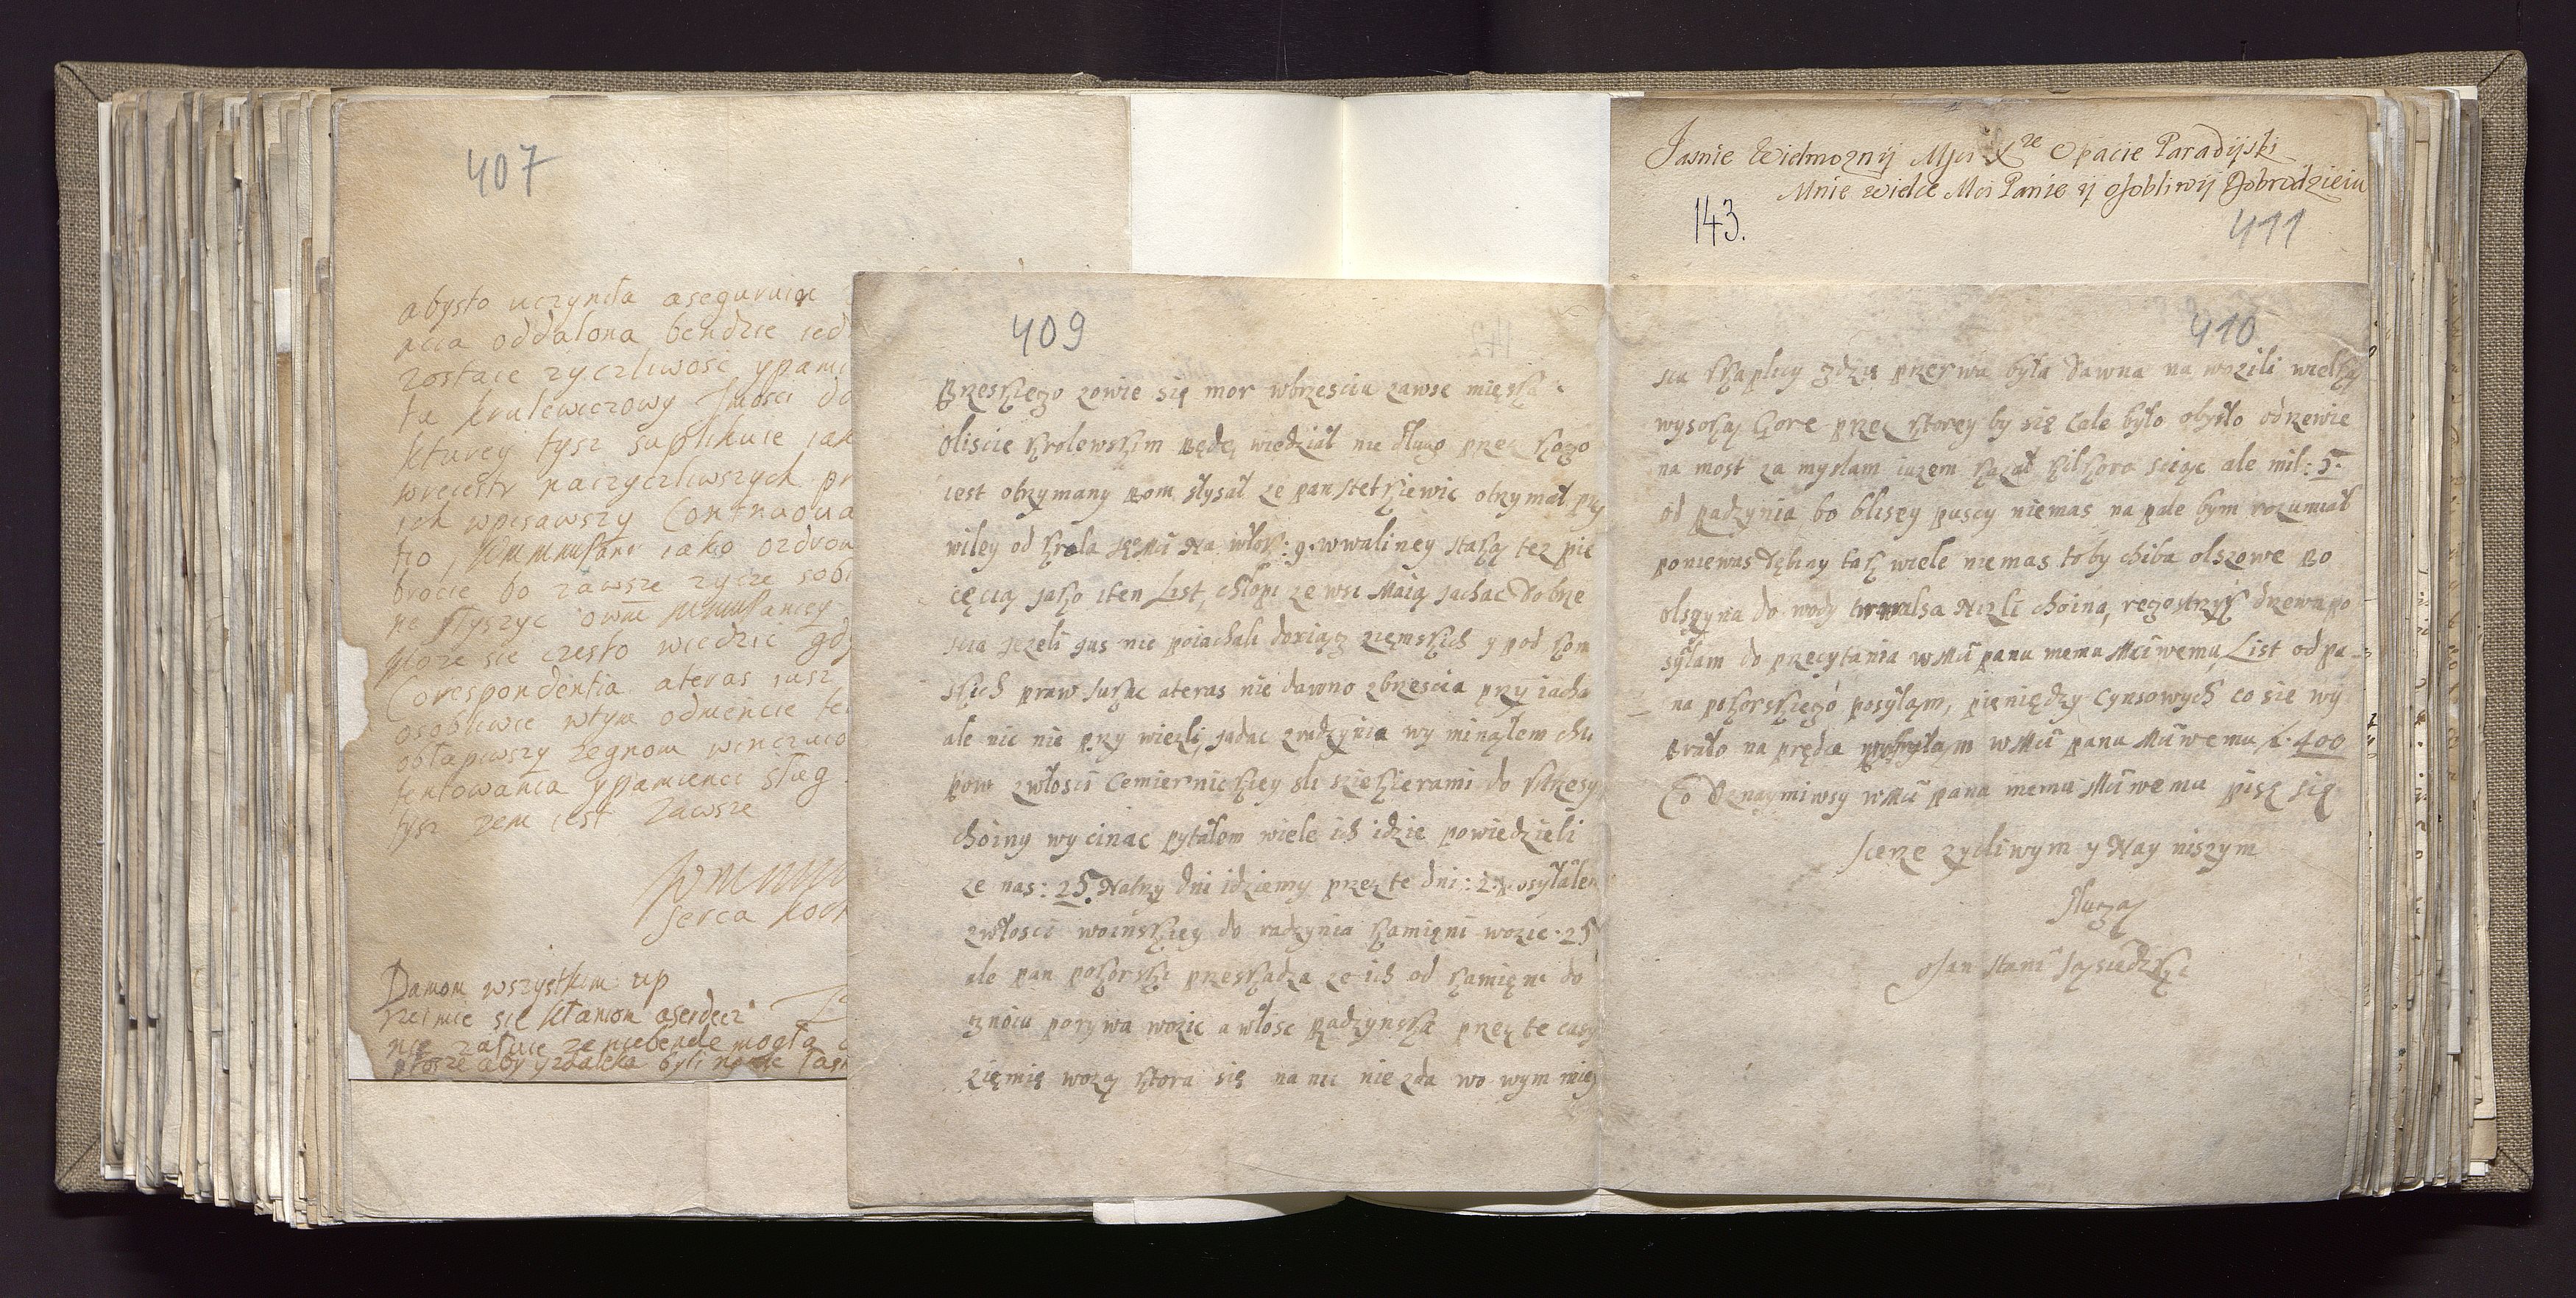 407
abysto uczyniła aseguruiąc
ncia oddalona bendzie ied
zostaie zyczliwość ypami
tu krulewiczowy Jmości do
kturey tysz suplikuie iak
wreiestr naizyczliwszych pr
ich wpisawszy Continoua
tio, iako ozdrow
brocie bo zawsze zycze sobi
ne słyszyc
może sie czesto wiedzic gdy
Corespondentia. ateras iusz
osobliwie wtym odmencie
obłapiwszy zegnom
tentowania ypamienci sług
tysz zem iest Zawsze
serca koch
Damom wszystkim up
rzeimie sie kłaniom aserdecz
nie załuie ze niebende mogła
prosze aby yzdaleka byli
409
Brzeskiego zowie się mor wbrzesciu zawse mięska
oliscie krolewskim Będę wiedział nie dlugo przez kogo
iest otrzymany Bom słysał ze pan stetkiewic otrzymał pry
wiley od krola Je°Mci Na włok: 9. wwaliney staką tez pie
cęcią jako iten List, chłopi ze wsi Maią jachac do brze
scia jezeli gus nie poiachali doxiąg ziemskich y pod kom
skich praw sukac ateras nie dawno zbrzescia przy iacha
ale nic nie przy wiezli, jadac zradzynia wy minąłem chło
pow zwłosci Cemiernickiey sli sziekierami do
choiny wy cinac pytałem wiele ich idzie powiedzieli
ze nas: 25. Natrzy dni idziemy przez te dni: 2. posyłałem
zwłosci woinskiey do radzynia kamięni wozic. 25
ale pan pokorski przeskadza ze ich od kamięni do
gnoiu porywa wozic a włosc Radzynska przez te casy
zięmię wozą ktora się na nic nie zda wo wym mie
Jasnie Wielmoznij Mjci Xze Opacie Paradijski
Mnie wielce Mci Panie ij osobliwij Dobrodzieiu
143.
411
410
scu kkaplicy gdzię przerwa była dawna na wozili wielką
wysoką Gore przez ktorey by się Cale było obysło odrzewie
na most za myslam iuzem kazał kilkoro sciąc ale mil: 5.
od Radzynia bo blisey puscy niemas na pale bym rozumiał
poniewas dębiny tak wiele niemas toby chiba olszowe Bo
olszyna do wody trwalsa Nizli choina, regestrzyk drzewa po
syłam do przecytania wMci panu memu Mciwemu, List od pa
na pokorskiego posyłąm, pięniędzy Cynsowych co sie wy
Brało na prędce wMci panu Mciwemu f. 400
Co Oznaymiwsy wMci panu memu Mciwemu pisę się
scerze zycliwym y Nay niszym
slugą
Jan stani